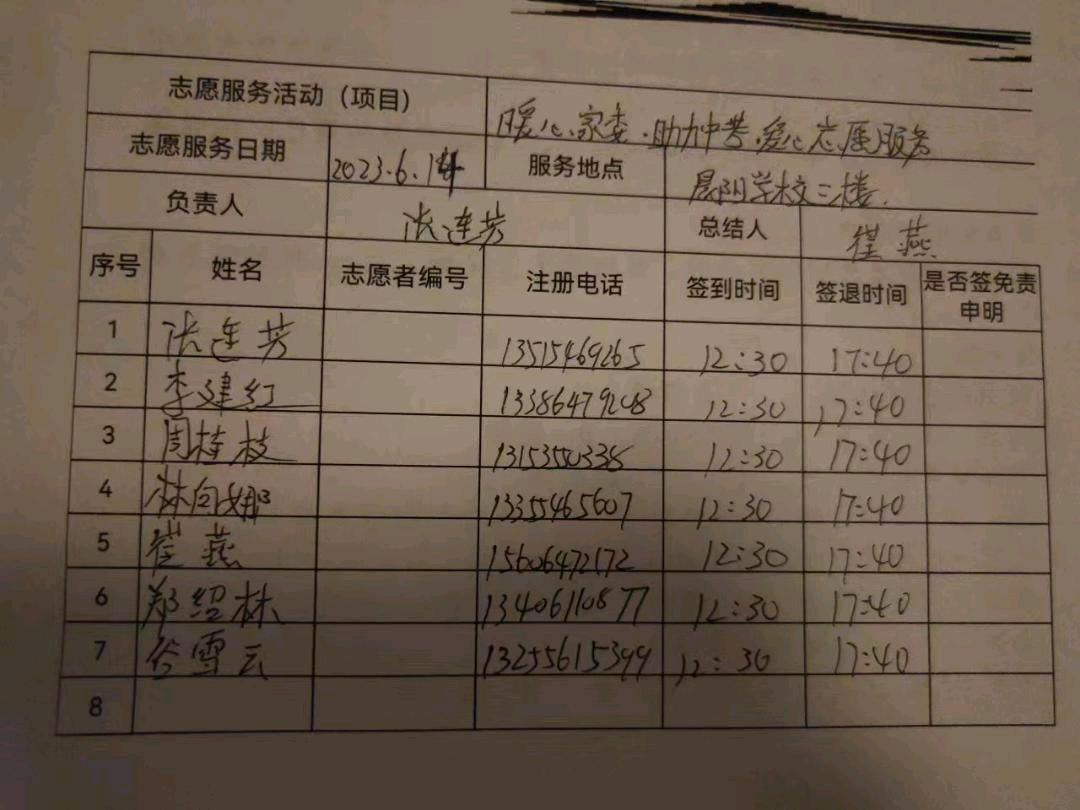 志愿服务活动（项目） 暖心家委·助力中考·爱心志愿服务
志愿服务日期 2023.6.14 服务地点 晨阳学校二楼.
负责人 张连芳 总结人 崔燕
序号 姓名 志愿者编号 注册电话 签到时间 签退时间 是否签免责申明
1 张连芳 13515469265 12:30 17:40
2 李建红 13386479208 12:30 17:40
3 周桂枝 13153550338 12:30 17:40
4 林向娜 13355465607 12:30 17:40
5 崔燕 15606472172 12:30 17:40
6 郑绍林 13406110877 12:30 17:40
7 谷雪云 13255615399 12:30 17:40
8